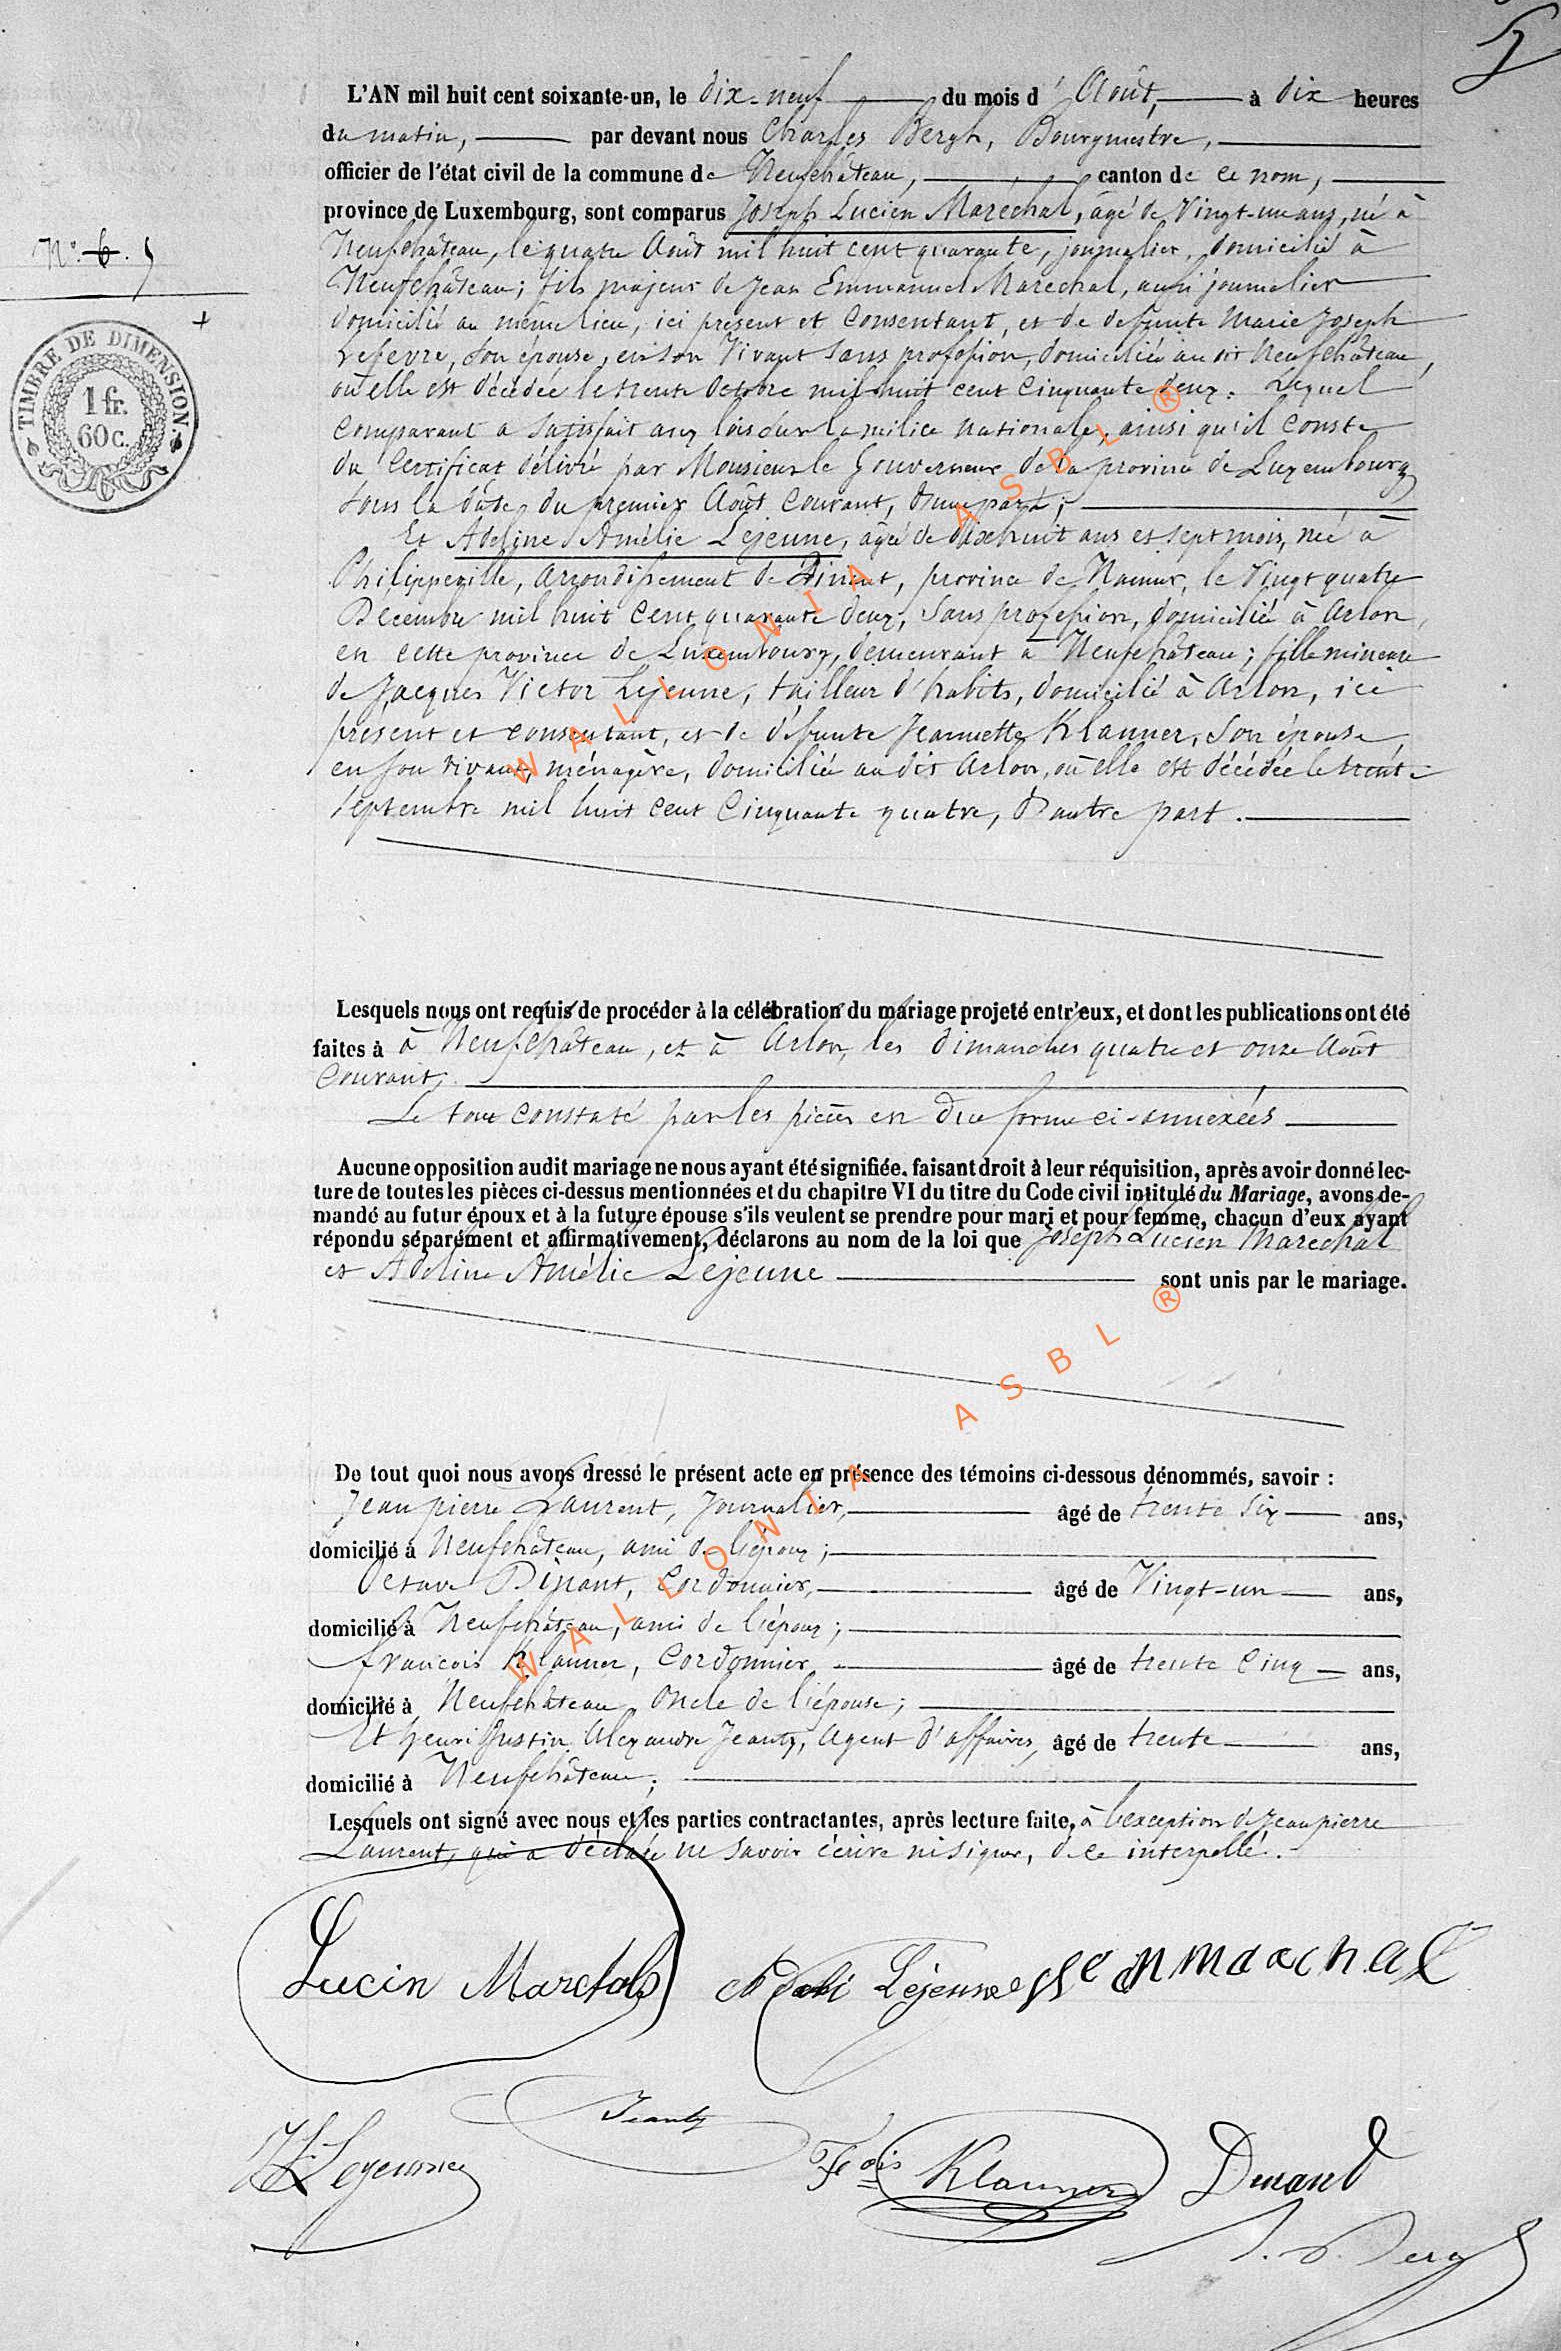 5
L'AN mil huit cent soixante-un, le dix-neuf du mois d' Août, à dix heures
du matin, par devant nous Charles Bergh, Bourgmestre,
officier de l'état civil de la commune de Neufchâteau, canton de ce nom,
province de Luxembourg, sont comparus Joseph Lucien Maréchal, âgé de Vingt-un ans, né à
N° 6. 5
Neufchâteau, le quatre Août mil huit cent quarante, journalier, domicilié à
Neufchâteau; fils majeur de Jean Emmanuel Maréchal, aussi journalier
domicilié au même lieu, ici présent et consentant, et de défunte Marie Joseph
Lefevre, son épouse, en son vivant sans profession, domiciliée au dit Neufchâteau,
où elle est décédée le trente Octobre mil huit cent cinquante deux. Lequel
comparant a satisfait aux lois sur la milice nationale, ainsi qu'il conste
du Certificat délivré par Monsieur le Gouverneur de la province de Luxembourg
sous la date du premier Août courant, d'une part;
TIMBRE DE DIMENSION
1 fr.
60 c.
Et Adeline Amélie Lejeune, âgée de dix huit ans et sept mois, née à
Philippeville, arrondissement de Dinant, province de Namur, le Vingt quatre
Décembre mil huit cent quarante deux, sans profession, domiciliée à Arlon,
en cette province de Luxembourg, demeurant à Neufchâteau; fille mineure
de Jacques Victor Lejeune, tailleur d'habits, domicilié à Arlon, ici
présent et consentant, et de défunte Jeannette Klanner, son épouse,
en son vivant, ménagère, domiciliée au dit Arlon, où elle est décédée le trente
Septembre mil huit cent cinquante quatre, d'autre part.
Lesquels nous ont requis de procéder à la célébration du mariage projeté entr'eux, et dont les publications ont été
faites à à Neufchâteau, et à Arlon, les dimanches quatre et onze Août
courant.
Le tout constaté par les pièces en due forme ci-annexées
Aucune opposition audit mariage ne nous ayant été signifiée, faisant droit à leur réquisition, après avoir donné lec-
ture de toutes les pièces ci-dessus mentionnées et du chapitre VI du titre du Code civil intitulé du Mariage, avons de-
mandé au futur époux et à la future épouse s'ils veulent se prendre pour mari et pour femme, chacun d'eux ayant
répondu séparément et affirmativement, déclarons au nom de la loi que Joseph Lucien Maréchal
et Adeline Amélie Lejeune sont unis par le mariage.
De tout quoi nous avons dressé le présent acte en présence des témoins ci-dessous dénommés, savoir :
Jean pierre Laurent, Journalier, âgé de trente six ans,
domicilié à Neufchâteau, ami de l'époux;
Octave Dinant, Cordonnier, âgé de Vingt-un ans,
domicilié à Neufchâteau, ami de l'époux;
françois Klanner, Cordonnier, âgé de trente cinq ans,
domicilié à Neufchâteau, Oncle de l'épouse;
Et henri Justin Alexandre Jeanty, Agent d'affaires, âgé de trente ans,
domicilié à Neufchâteau;
Lesquels ont signé avec nous et les parties contractantes, après lecture faite, à l'exception de Jean pierre
Laurent, qui a déclaré ne savoir écrire ni signer, de ce interpellé.
Lucin Marchal Lejeune
Jeanty
Lejeune Fois Klanner Dinand
WALLONIA ASBL ®
WALLONIA ASBL ®